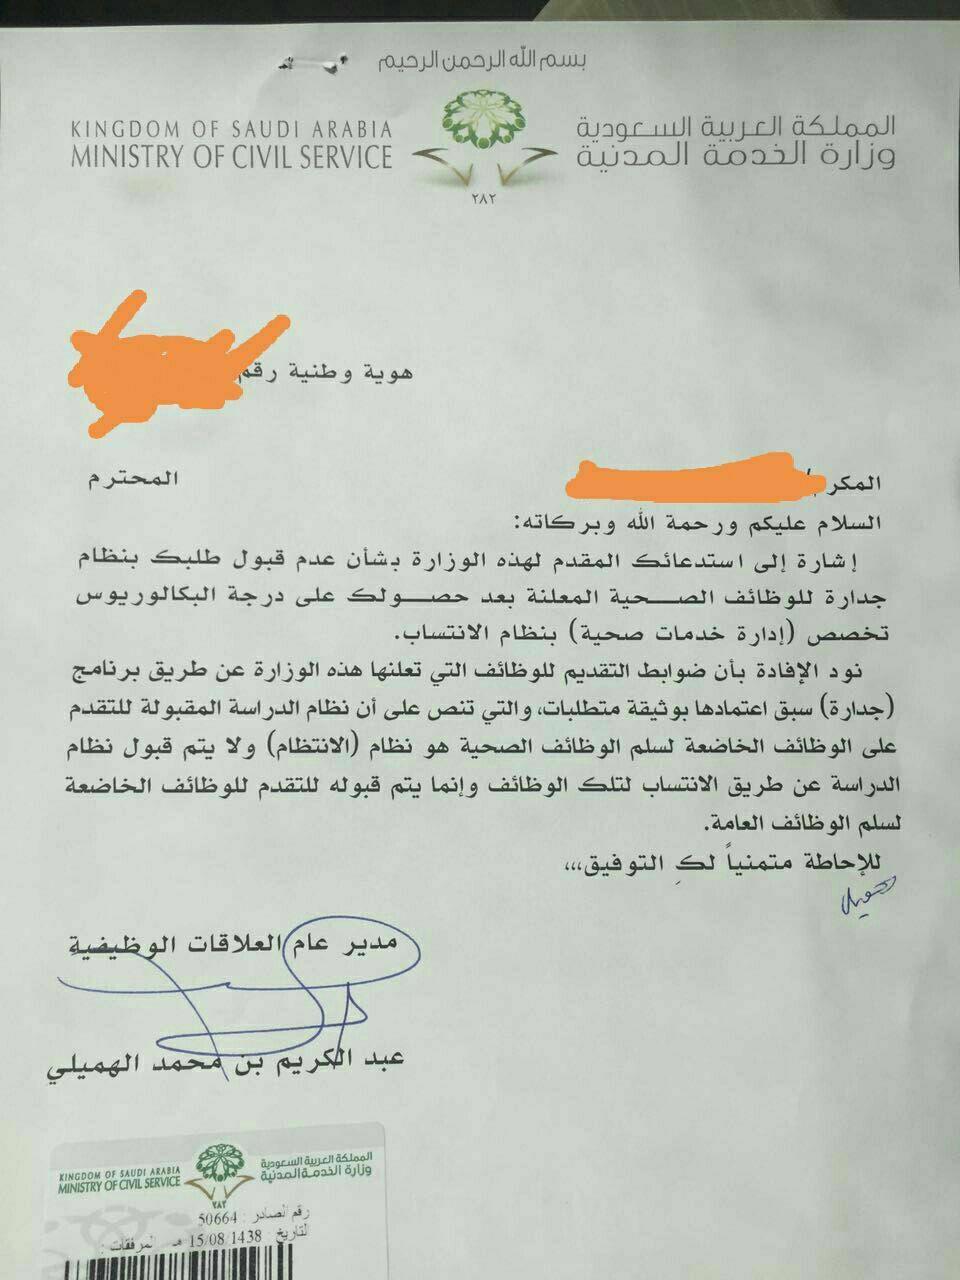 بسم الله الرحمن الرحيم
KINGDOM OF SAUDI ARABIA
MINISTRY OF CIVIL SERVICE
المملكة العربية السعودية
وزارة الخدمة المدنية
٢٨٢
هوية وطنية رقم
المكر المحترم
السلام عليكم ورحمة الله وبركاته:
إشارة إلى استدعائك المقدم لهذه الوزارة بشأن عدم قبول طلبك بنظام
جدارة للوظائف الصحية المعلنة بعد حصولك على درجة البكالوريوس
تخصص (إدارة خدمات صحية) بنظام الانتساب.
نود الإفادة بأن ضوابط التقديم للوظائف التي تعلنها هذه الوزارة عن طريق برنامج
(جدارة) سبق اعتمادها بوثيقة متطلبات، والتي تنص على أن نظام الدراسة المقبولة للتقدم
على الوظائف الخاضعة لسلم الوظائف الصحية هو نظام (الانتظام) ولا يتم قبول نظام
الدراسة عن طريق الانتساب لتلك الوظائف وإنما يتم قبوله للتقدم للوظائف الخاضعة
لسلم الوظائف العامة.
للإحاطة متمنياً لكِ التوفيق،،،
مدير عام العلاقات الوظيفية
عبد الكريم بن محمد الهميلي
KINGDOM OF SAUDI ARABIA
MINISTRY OF CIVIL SERVICE
المملكة العربية السعودية
وزارة الخدمة المدنية
٢٨٢
رقم الصادر : 50664
التاريخ : 15/08/1438 هـ المرفقات :